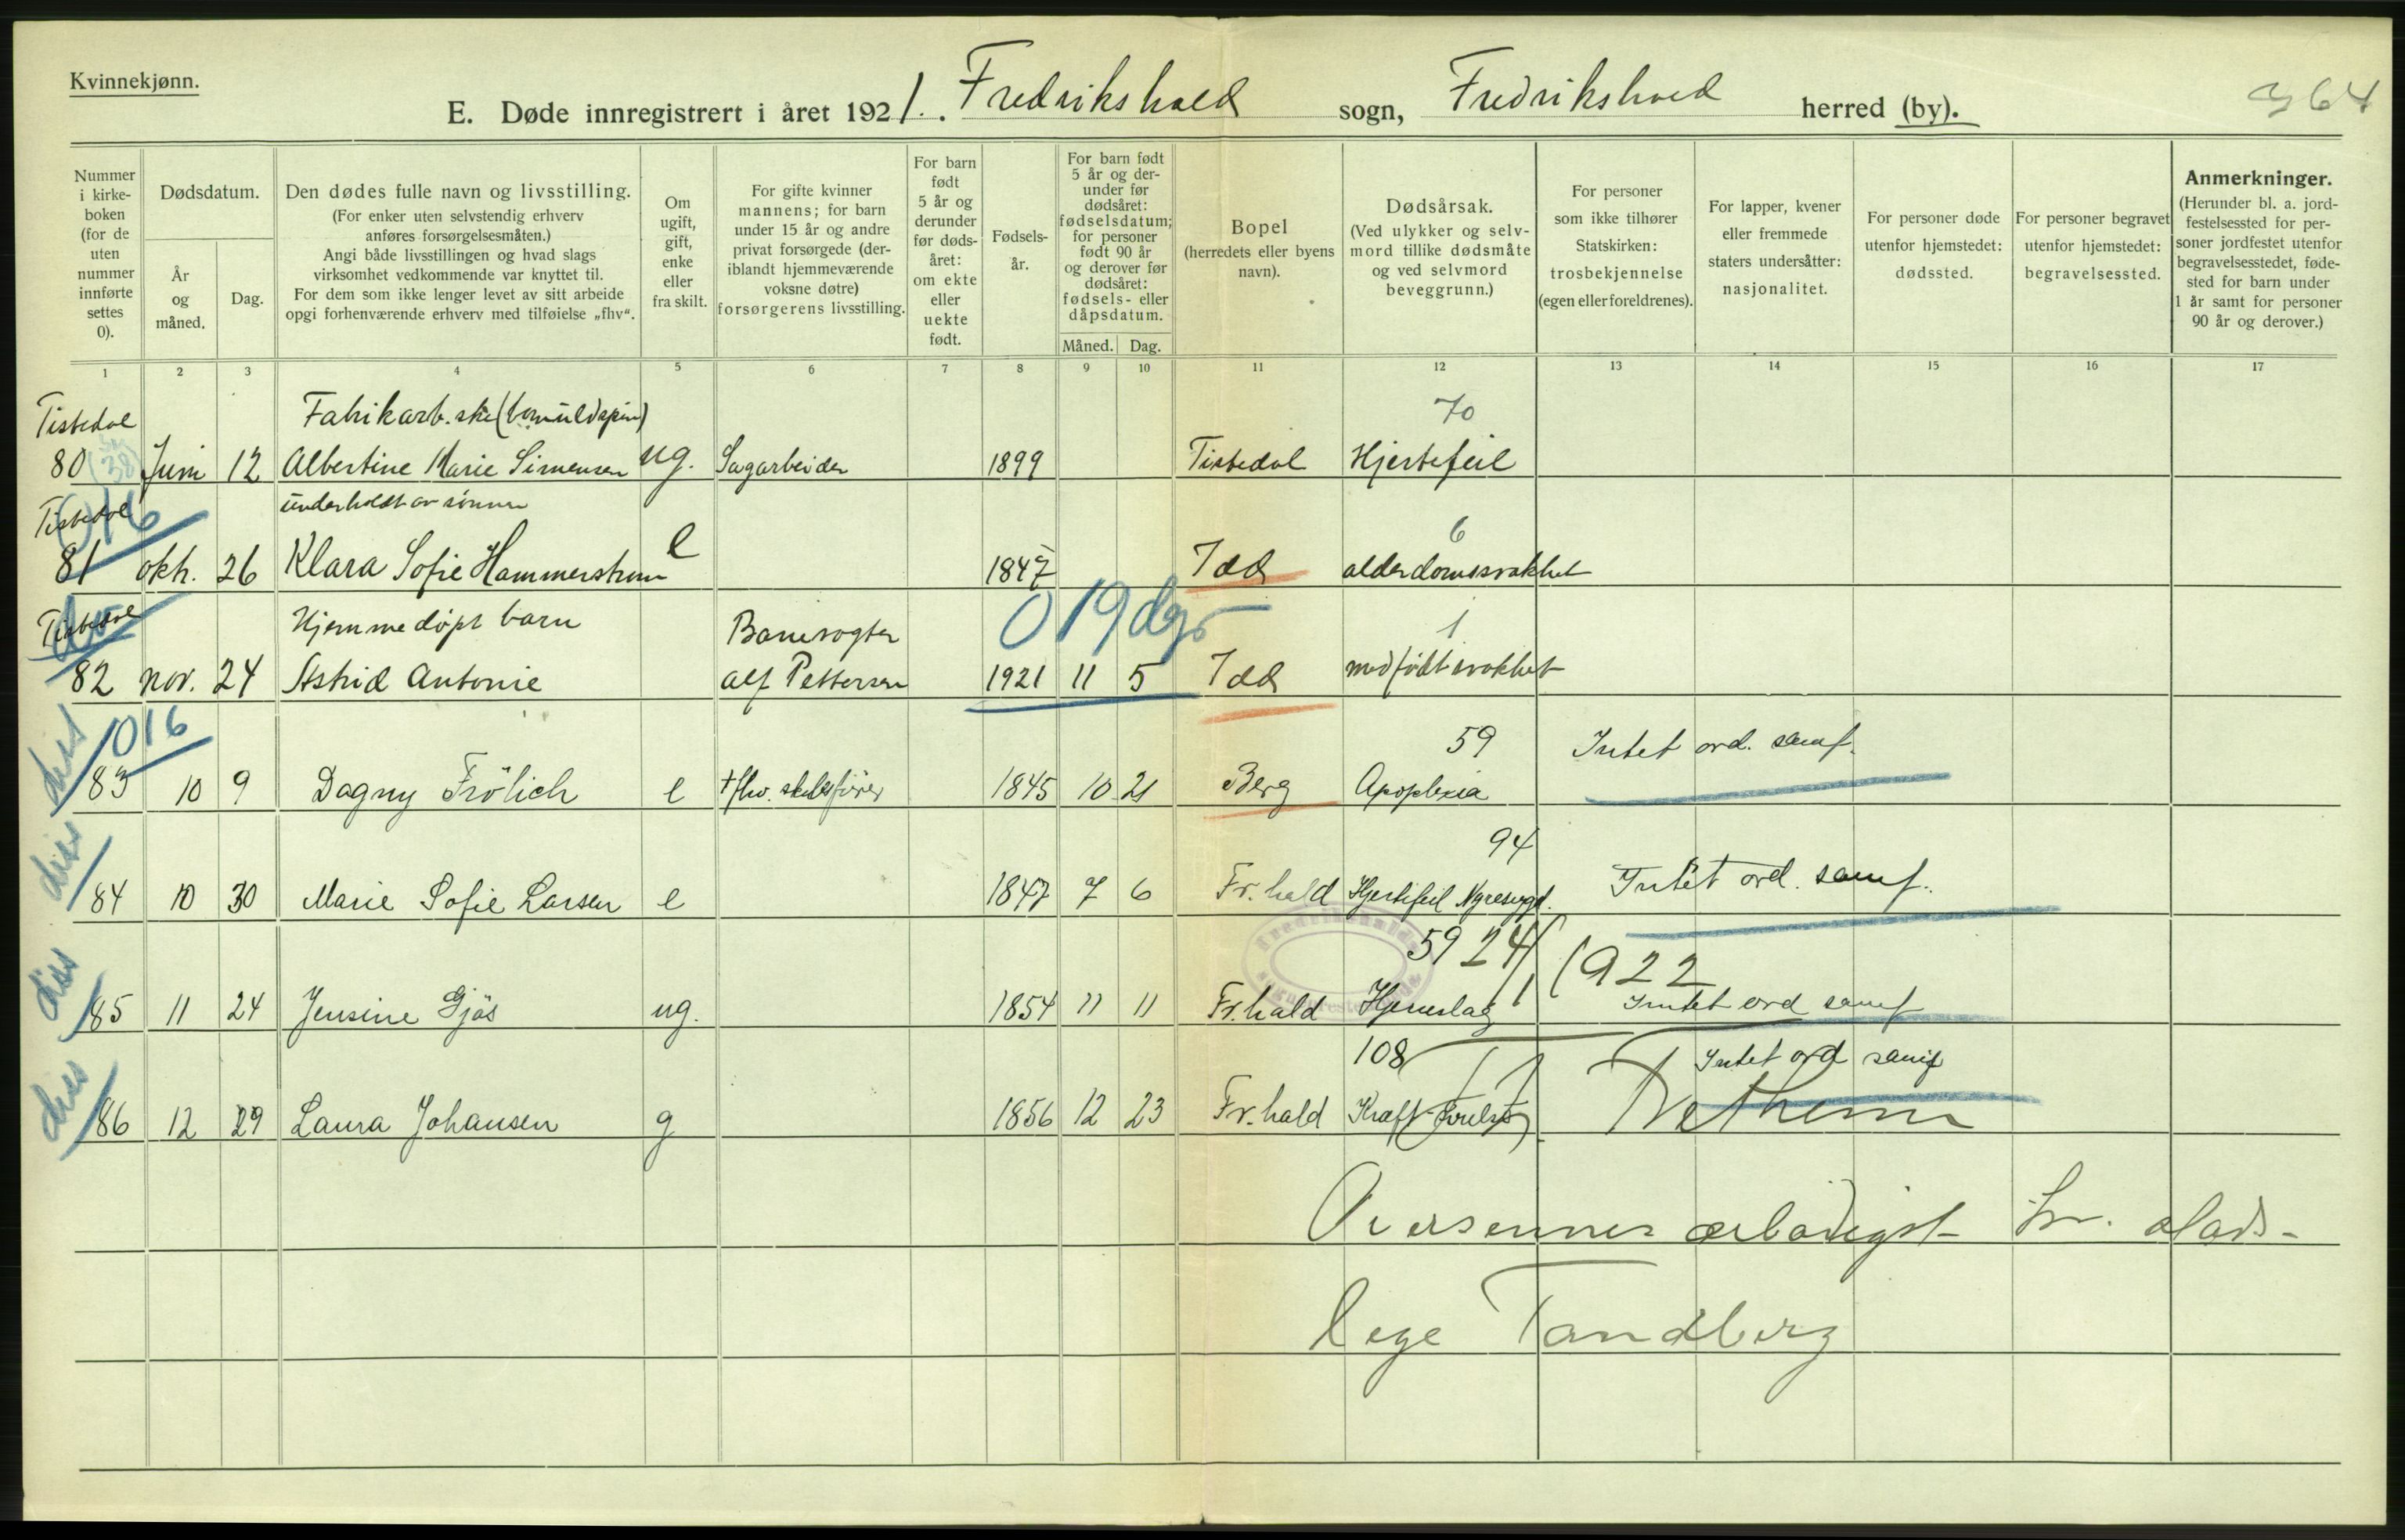 Kvinnekjønn.
E. Døde innregistrert i året 1921. Fredrikshald sogn, Fredrikshald herred (by).
364
Nummer i kirke-boken (for de uten nummer innførte settes 0).
Dødsdatum.
År og måned.
Dag.
Den dødes fulle navn og livsstilling.
(For enker uten selvstendig erhverv anføres forsørgelsesmåten.)
Angi både livsstillingen og hvad slags virksomhet vedkommende var knyttet til.
For dem som ikke lenger levet av sitt arbeide opgi forhenværende erhverv med tilføielse „fhv“.
Om ugift, gift, enke eller fraskilt.
For gifte kvinner mannens; for barn under 15 år og andre privat forsørgede (der-iblandt hjemmeværende voksne døtre) forsørgerens livsstilling.
For barn født 5 år og derunder før døds-året: om ekte eller uekte født.
Fødsels-år.
For barn født 5 år og der-under før dødsåret: fødselsdatum; for personer født 90 år og derover før dødsåret: fødsels- eller dåpsdatum.
Måned.
Dag.
Bopel
(herredets eller byens navn).
Dødsårsak.
(Ved ulykker og selv-mord tillike dødsmåte og ved selvmord beveggrunn.)
For personer som ikke tilhører Statskirken: trosbekjennelse (egen eller foreldrenes).
For lapper, kvener eller fremmede staters undersåtter: nasjonalitet.
For personer døde utenfor hjemstedet: dødssted.
For personer begravet utenfor hjemstedet: begravelsessted.
Anmerkninger.
(Herunder bl. a. jord-festelsessted for per-soner jordfestet utenfor begravelsesstedet, føde-sted for barn under 1 år samt for personer 90 år og derover.)
1 2 3 4 5 6 7 8 9 10 11 12 13 14 15 16 17
Tistedal Fabrikarb.ske (bomuldspin) 70
80 (38) Juni 12 Albertine Marie Simensen ug. Sagarbeider 1899 Tistedal Hjertefeil
Tistedal 016 underholdt av sønnen 6
81 okt. 26 Klara Sofie Hammerstrøm e 1847 Idd alderdomssvakhet
Tistedal Hjemmedöpt barn Banevogter 0 19 dgr 1
82 nov. 24 Astrid Antonie Alf Pettersen 1921 11 5 Idd medfödt svakhet
diss 016 59 Intet ord. samf.
83 10 9 Dagny Frölich e 1845 10 21 Berg Apoplexia
diss 94 Intet ord. samf.
84 10 30 Marie Sofie Larsen e 1847 7 6 Fr.hald Hjertefeil Nyresygd.
diss 59 24/1 1922
85 11 24 Jensine Gjøs ug. 1854 11 11 Fr.hald Hjerneslag Intet ord samf
diss 108 Intet ord samf
86 12 29 Laura Johansen g 1856 12 23 Fr.hald Kræft
Oversennes ærbødigst hr. stads-
lege Tandberg